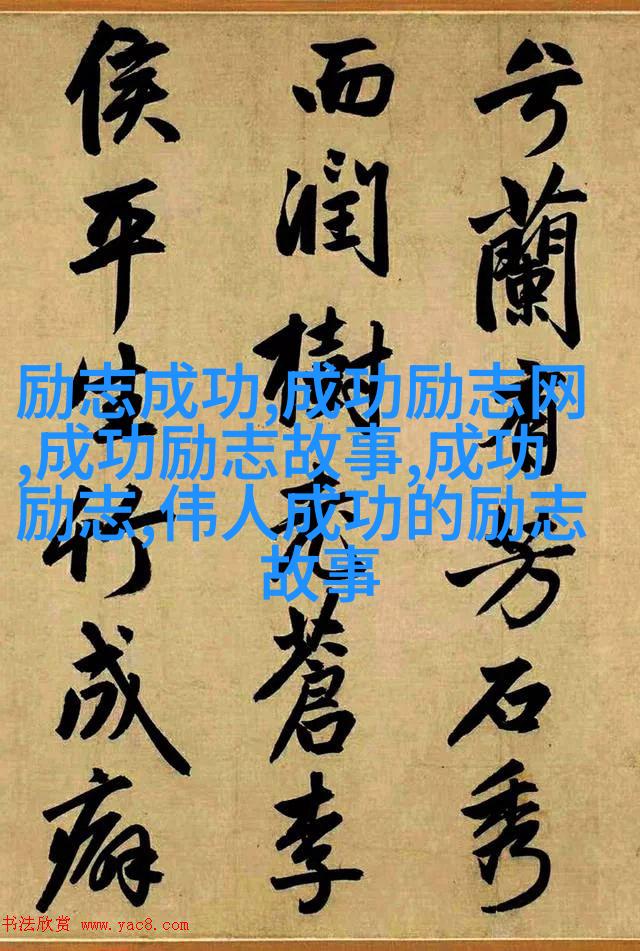 兮蘭有芳石秀
而潤樹老蒼李
侯平生竹成癖
励志成功,成功励志网
,成功励志故事,成功
励志,伟人成功的励志
故事
书法欣赏 www.yac8.com